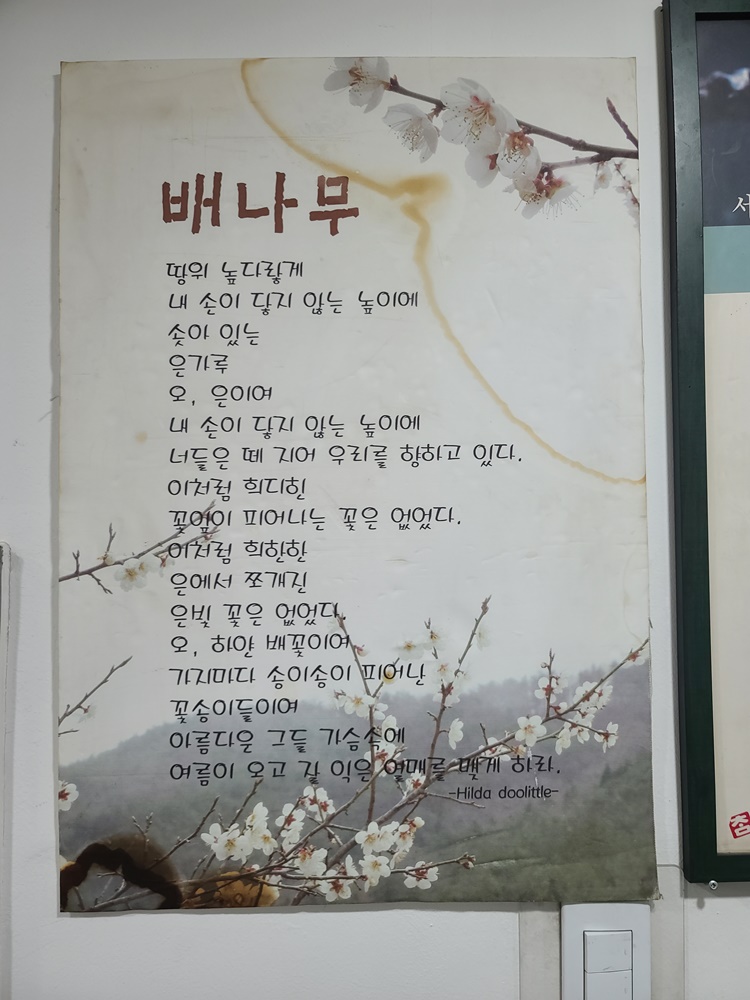 배나무
땅위 높다랗게
내 손이 닿지 않는 높이에
솟아 있는
은가루
오, 은이여
내 손이 닿지 않는 높이에
너들은 떼 지어 우리를 향하고 있다.
이처럼 희디힌
꽃잎이 피어나는 꽃은 없었다.
이처럼 희한한
은에서 쪼개진
은빛 꽃은 없었다.
오, 하얀 배꽃이여
가지마다 송이송이 피어난
꽃송이들이여
아름다운 그들 가슴속에
여름이 오고 잘 익은 열매를 맺게 하라.
-Hilda doolittle-
서